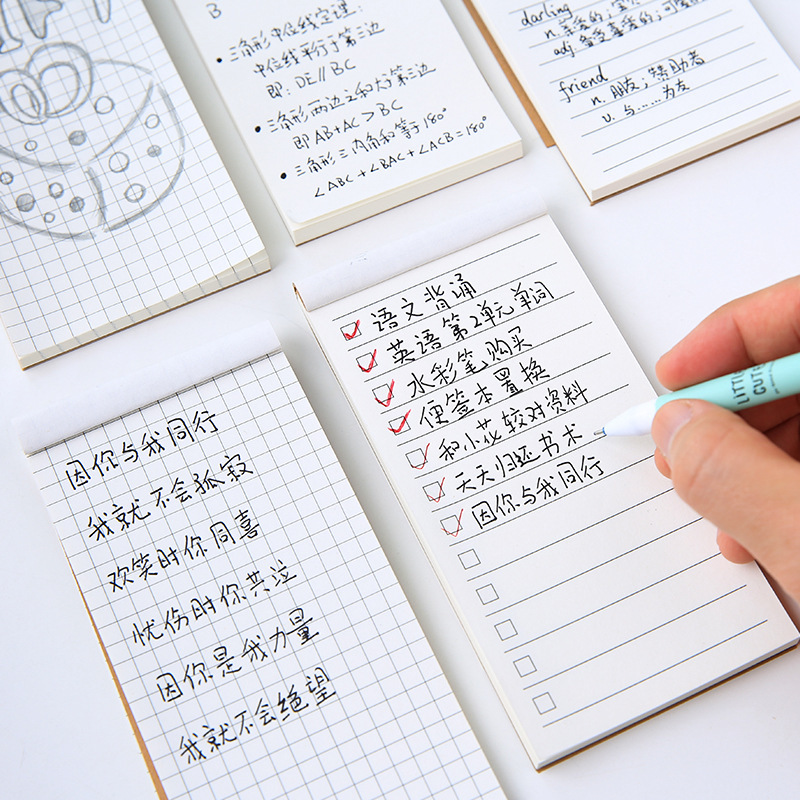 B
• 三角形中位线定理:
中位线平行于第三边
即: DE // BC
• 三角形两边之和大于第三边
即 AB+AC > BC
• 三角形三内角和等于180°
∠ABC + ∠BAC + ∠ACB = 180°
darling
n. 亲爱的;
adj. 备受喜爱的;
friend
n. 朋友; 赞助者
v. 与……为友
语文背诵
英语第2单元单词
水彩笔购买
便签本置换
和小花较对资料
天天归还书术
因你与我同行
LITTLE
CUTE
因你与我同行
我就不会孤寂
欢笑时你同喜
忧伤时你共泣
因你是我力量
我就不会绝望